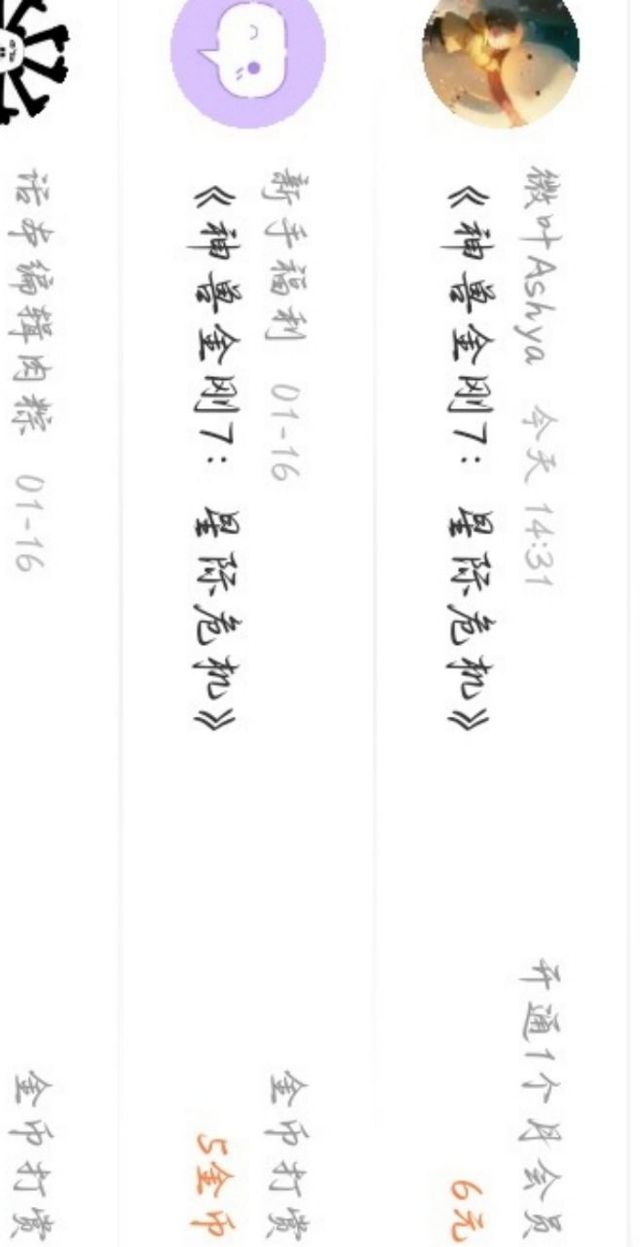 微叶Ashya 今天 14:31 开通1个月会员
《神兽金刚7: 星际危机》 6元
新手福利 01-16 金币打赏
《神兽金刚7: 星际危机》 5金币
话本编辑肉粽 01-16 金币打赏